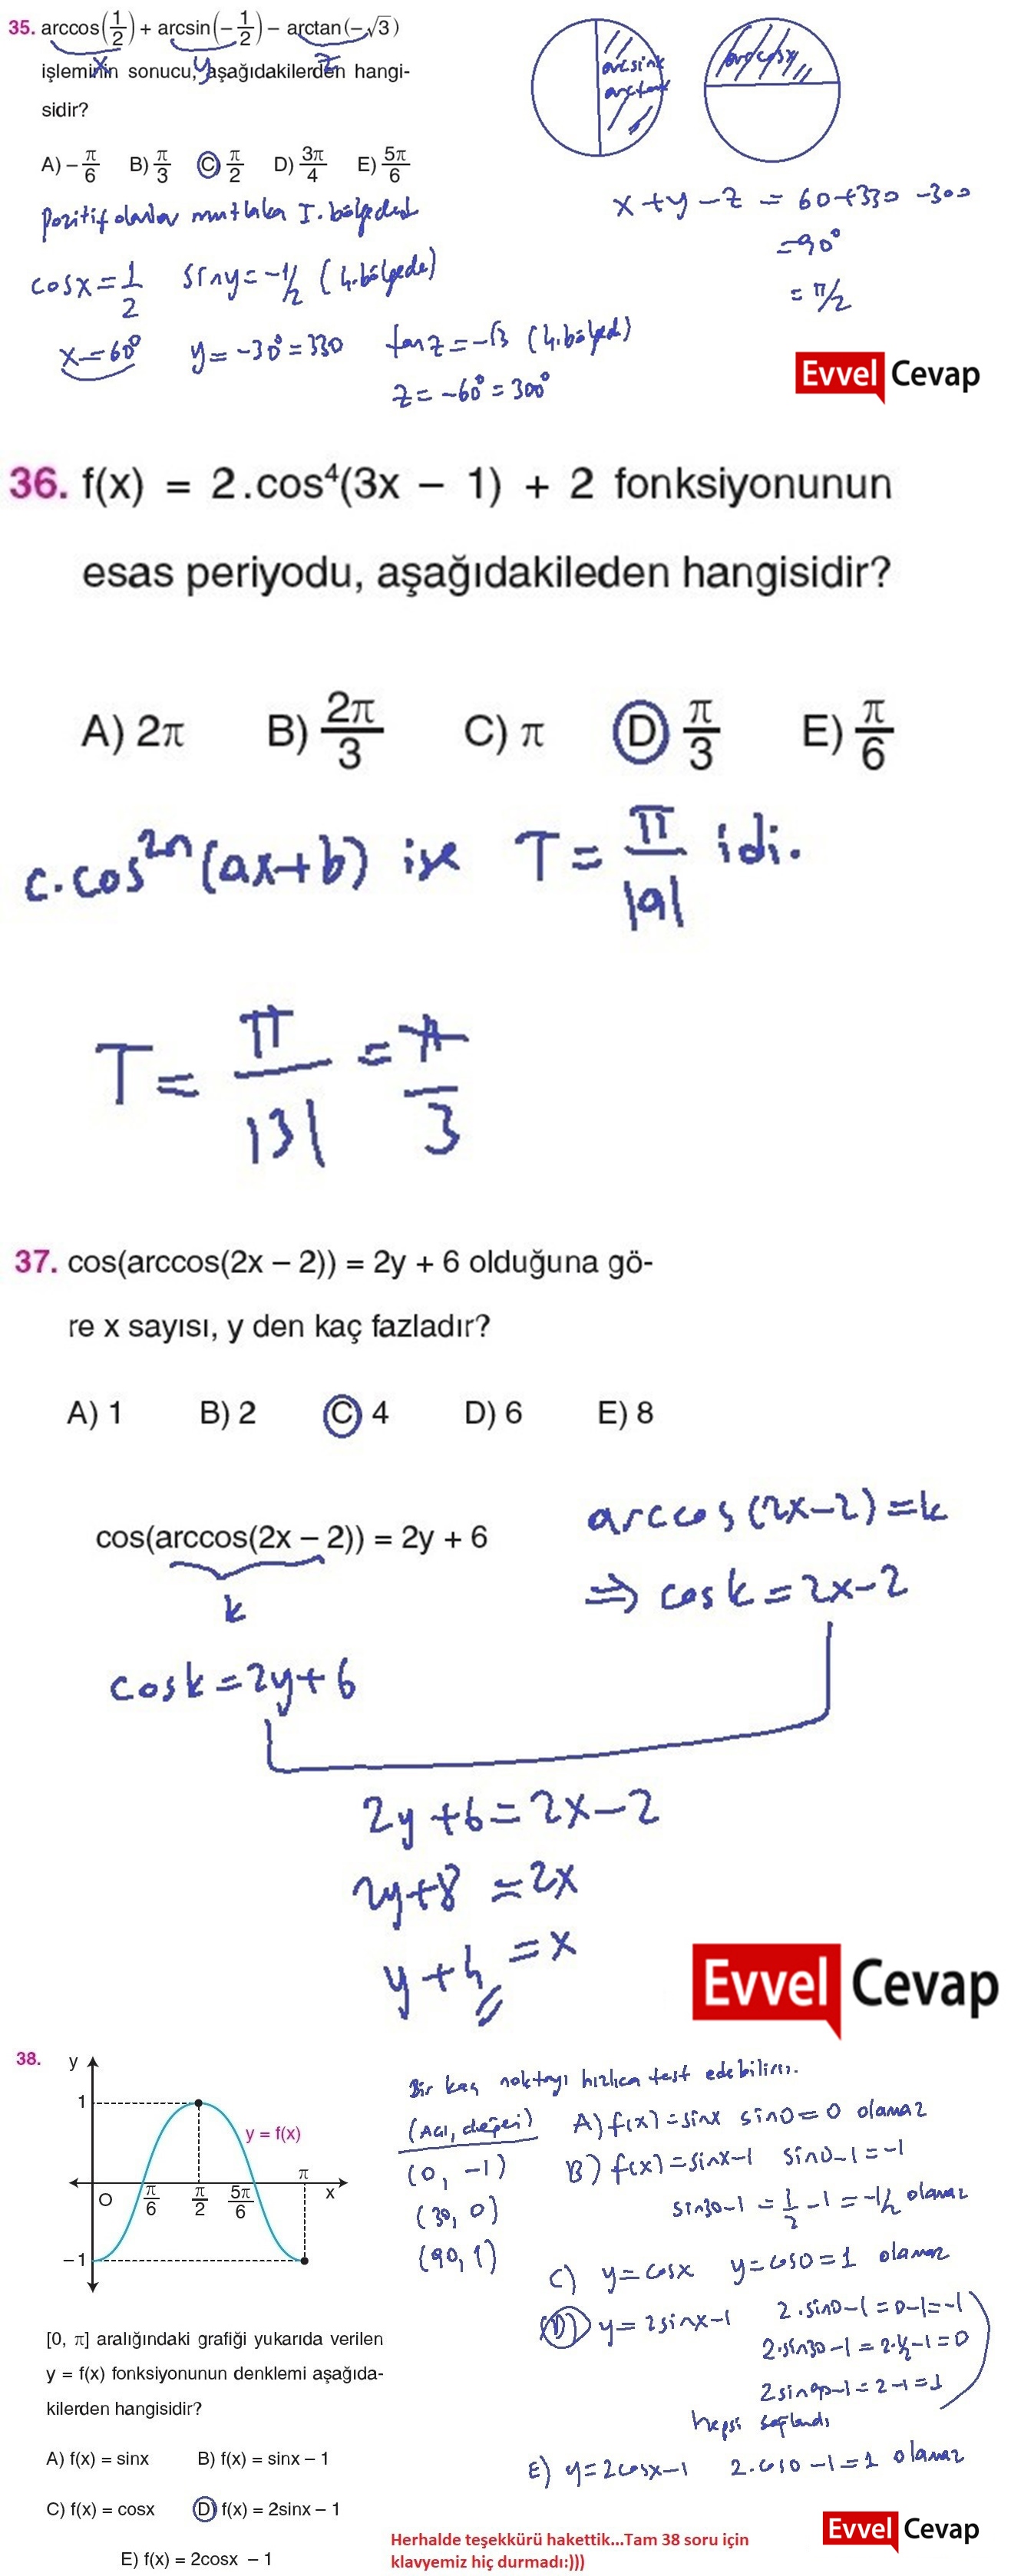 35. arccos(1/2) + arcsin(-1/2) - arctan(-√3)
x y z
işleminin sonucu, aşağıdakilerden hangi-
sidir?
A) -π/6 B) π/3 C) π/2 D) 3π/4 E) 5π/6
arcsinx
arctanx
arccosx
Pozitif olanlar mutlaka I. bölgededir
cosx = 1/2 siny = -1/2 (4. bölgede)
x = 60° y = -30° = 330 tanz = -√3 (4. bölged)
z = -60° = 300°
x + y - z = 60 + 330 - 300
= 90°
= π/2
Evvel Cevap
36. f(x) = 2.cos⁴(3x - 1) + 2 fonksiyonunun
esas periyodu, aşağıdakileden hangisidir?
A) 2π B) 2π/3 C) π D) π/3 E) π/6
c.cos²ⁿ(ax+b) ise T = π/|a| idi.
T = π/|3| = π/3
37. cos(arccos(2x – 2)) = 2y + 6 olduğuna gö-
re x sayısı, y den kaç fazladır?
A) 1 B) 2 C) 4 D) 6 E) 8
cos(arccos(2x – 2)) = 2y + 6
k
cosk = 2y+6
arccos(2x-2) = k
⇒ cosk = 2x-2
2y+6 = 2x-2
2y+8 = 2x
y+4 = x
Evvel Cevap
38.
y
1
y = f(x)
O π/6 π/2 5π/6 π x
–1
[0, π] aralığındaki grafiği yukarıda verilen
y = f(x) fonksiyonunun denklemi aşağıda-
kilerden hangisidir?
A) f(x) = sinx B) f(x) = sinx – 1
C) f(x) = cosx D) f(x) = 2sinx – 1
E) f(x) = 2cosx – 1
Bir kaç noktayı hızlıca test edebiliriz.
(Açı, değeri)
(0, -1)
(30, 0)
(90, 1)
A) f(x) = sinx sin0 = 0 olamaz
B) f(x) = sinx-1 sin0-1 = -1
sin30-1 = 1/2 -1 = -1/2 olamaz
C) y = cosx y = cos0 = 1 olamaz
D) y = 2sinx-1 2.sin0-1 = 0-1 = -1
2.sin30-1 = 2.1/2-1 = 0
2sin90-1 = 2-1 = 1
hepsi sağlandı
E) y = 2cosx-1 2.cos0-1 = 1 olamaz
Herhalde teşekkürü hakettik...Tam 38 soru için
klavyemiz hiç durmadı:)))
Evvel Cevap